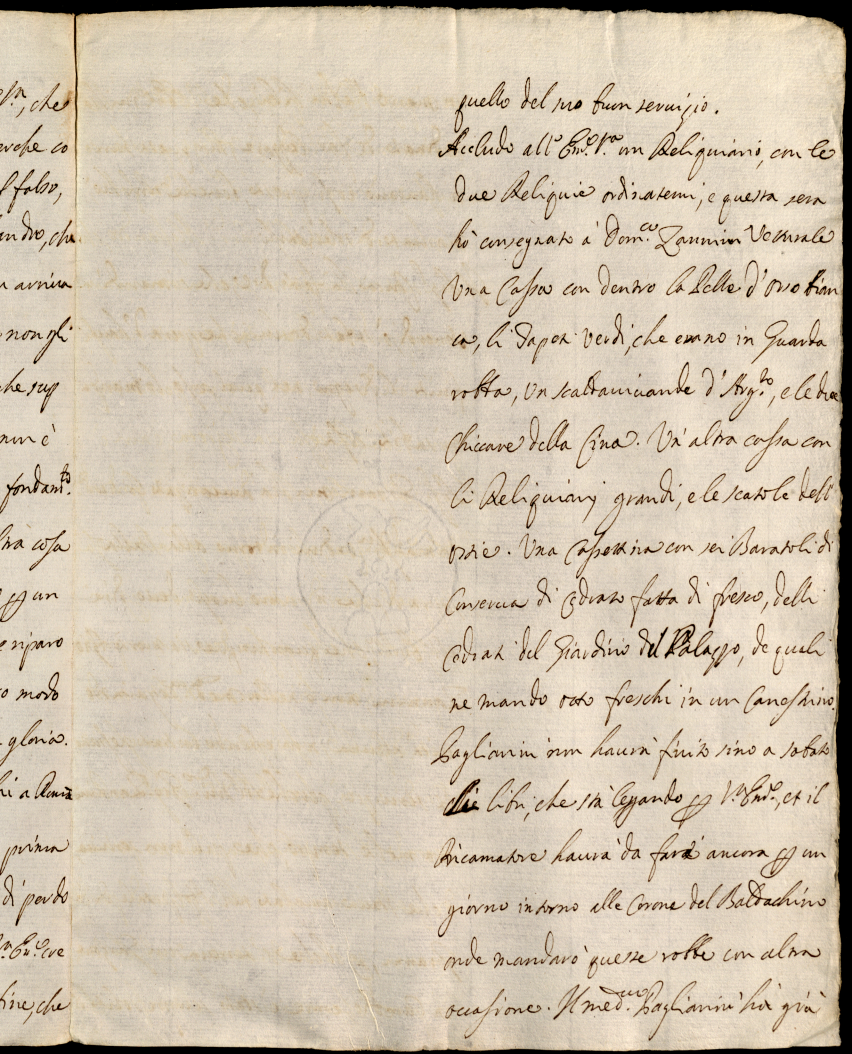 sn, che
perche co
l falso,
andro, che
n arriva
non gli
che sup
non è
fondam.to
ltra cosa
p un
e riparo
o modo
gloria.
hi a Roma
prima
di perdo
Em.a cre
fine, che
quello del suo buon seruizio.
Accludo all'Em.a V.a un Reliquiario, con le
due Reliquie ordinatemi, e questa sera
hò consegnato à Dom.co Zannini Vetturale
Una Cassa con dentro la Pelle d'Orso bian
ca, li Tapeti Verdi, che erano in Guarda
robba, Un scaldauiuande d'Arg.to, e le due
Chiccare della Cina. Un'altra cassa con
li Reliquiarij grandi, e le scatole dell'
Ostie. Una Cassettina con sei Baratoli di
Conserua di Cedrato fatta di fresco, delli
Cedrati del Giardino del Palazzo, de quali
ne mando otto freschi in un Canestrino.
Pagliarini non haurà finito sino a sabato
li libri, che stà legando p V.a Em.a, et il
Ricamatore haurà da fare ancora p un
giorno intorno alle Corone del Baldachino
onde mandarò queste robbe con altra
occasione. Il med.mo Pagliarini hà già